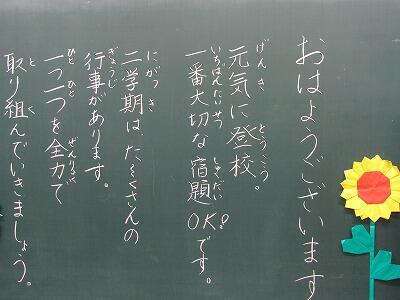 おはようございます
元気に登校。
一番大切な宿題OK!です。
二学期は、たくさんの
行事があります。
一つ一つを全力で
取り組んでいきましょう。